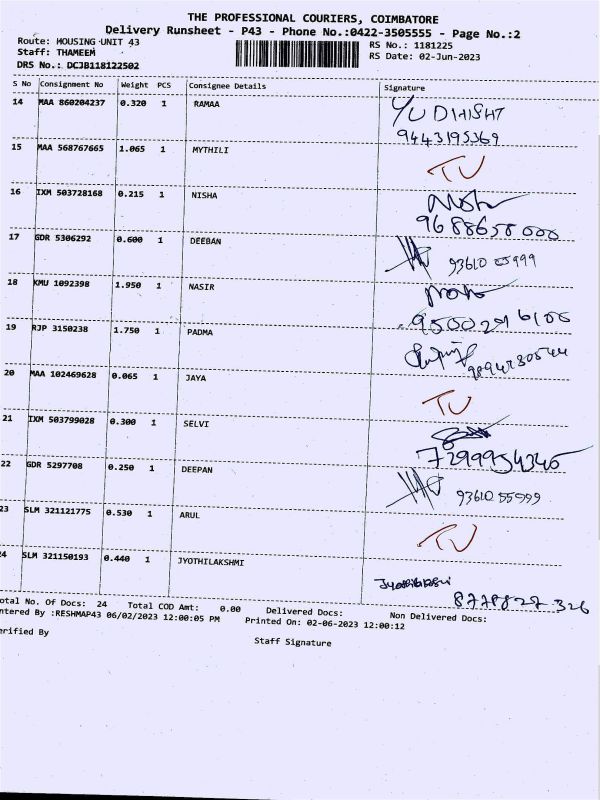 THE PROFESSIONAL COURIERS, COIMBATORE
Delivery Runsheet - P43 - Phone No.:0422-3505555 - Page No.:2
Route: HOUSING UNIT 43 RS No.: 1181225
Staff: THAMEEM RS Date: 02-Jun-2023
DRS No.: DCJB118122502
S No Consignment No Weight PCS Consignee Details Signature
14 MAA 860204237 0.320 1 RAMAA YUDHISHT
9443195369
15 MAA 568767665 1.065 1 MYTHILI TU
16 IXM 503728168 0.215 1 NISHA
9688658000
17 GDR 5306292 0.600 1 DEEBAN 93610 55999
18 KMU 1092398 1.950 1 NASIR
9500296100
19 RJP 3150238 1.750 1 PADMA
20 MAA 102469628 0.065 1 JAYA TU
21 IXM 503799028 0.300 1 SELVI
22 GDR 5297708 0.250 1 DEEPAN 93610 55999
23 SLM 321121775 0.530 1 ARUL TU
24 SLM 321150193 0.440 1 JYOTHILAKSHMI
8778827326
otal No. Of Docs: 24 Total COD Amt: 0.00 Delivered Docs: Non Delivered Docs:
ntered By :RESHMAP43 06/02/2023 12:00:05 PM Printed On: 02-06-2023 12:00:12
erified By Staff Signature